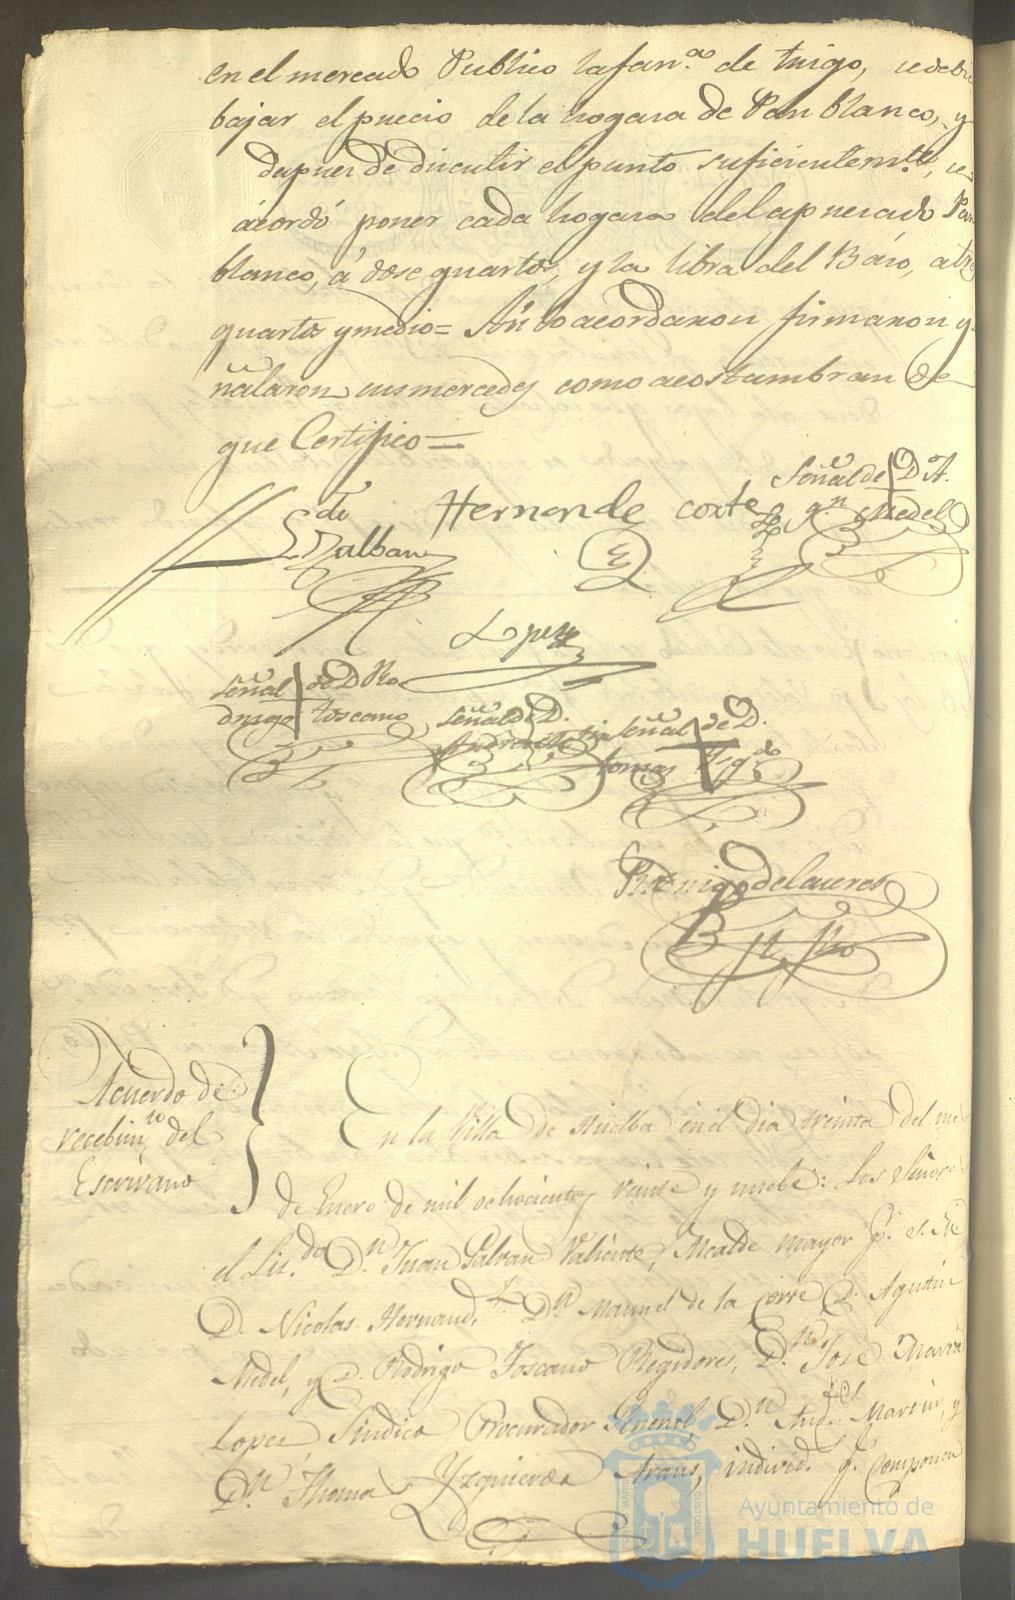 en el mercado Publico la fan.ª de trigo, se debia
bajar el precio de la hogasa de Pan blanco, y
despues de discutir el punto suficientem.te, se
acordó poner cada hogasa del apresado Pan
blanco, á dose quartos, y la libra del Baso, a tres
quartos y medio = Asi lo acordaron firmaron y se
ñalaron sus mercedes como acostumbran de
que Certifico =
L.do Galban
Hernandez
corte
Señal de D. A.
g.n Medel
Lopez
Señal de D. Ro
drigo toscano
Señal de D.
Andres Martin
Señal de D.
tomas Yzq.do
Acuerdo de
recebim.to del
Escrivano
En la Villa de Huelba en el dia treinta del mes
de Enero de mil ochocientos veinte y nuebe: Los Señores
el Lic.do D.n Juan Galvan Valiente, Alcalde mayor p.r S. M.
D. Nicolas Hernand.z D.n Manuel de la Corte D. Agustin
Medel, y D. Rodrigo Toscano Regidores, D.n Jose Maria
Lopez Sindico Procurador General, D.n And.s Martin, y
D.n Thomas Yzquierdo Araus, individ.s q.e componen
Ayuntamiento de
HUELVA